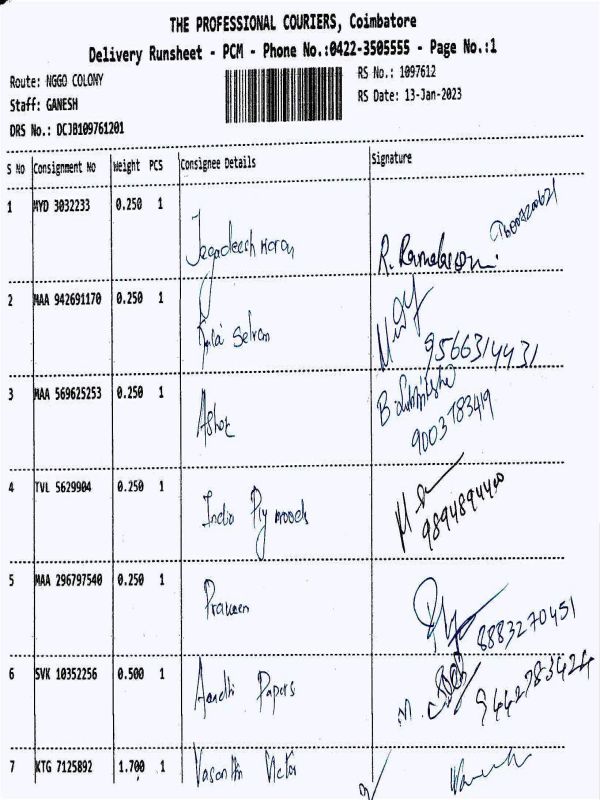 THE PROFESSIONAL COURIERS, Coimbatore
Delivery Runsheet - PCM - Phone No.:0422-3505555 - Page No.:1
Route: NGGO COLONY
RS No.: 1097612
Staff: GANESH
RS Date: 13-Jan-2023
DRS No.: DCJB109761201
S No Consignment No Weight PCS Consignee Details Signature
1 MYD 3032233 0.250 1
R. Ramaswami
2 MAA 942691170 0.250 1 Selvam
9566314431
3 MAA 569625253 0.250 1 Ashok
9003783419
4 TVL 5629904 0.250 1 India Plywoods
9894894400
5 MAA 296797540 0.250 1 Praveen
8883270451
6 SVK 10352256 0.500 1 Papers
9442783424
7 KTG 7125892 1.700 1 Vasanth Victor